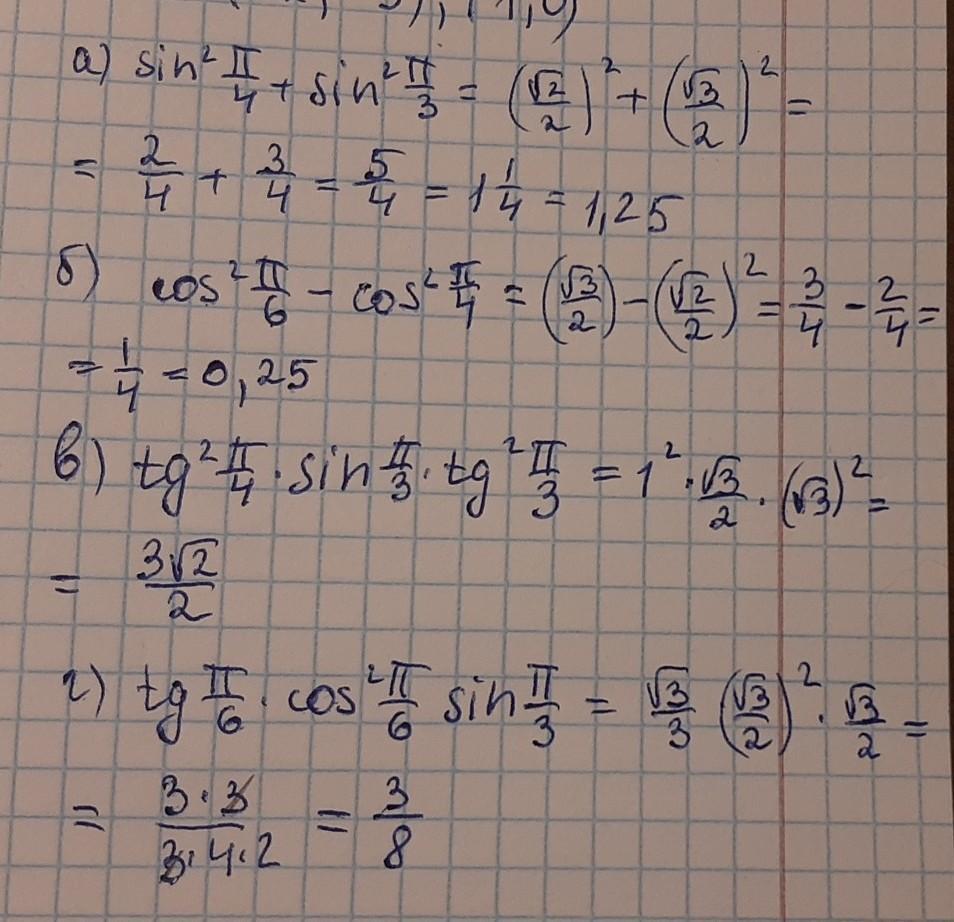 а) sin² π/4 + sin² π/3 = (√2/2)² + (√3/2)² =
= 2/4 + 3/4 = 5/4 = 1 1/4 = 1,25
б) cos² π/6 − cos² π/4 = (√3/2) − (√2/2)² = 3/4 − 2/4 =
= 1/4 = 0,25
в) tg² π/4 · sin π/3 · tg² π/3 = 1² · √3/2 · (√3)² =
= 3√2/2
г) tg π/6 · cos² π/6 sin π/3 = √3/3 (√3/2)² · √3/2 =
= 3·3/3·4·2 = 3/8